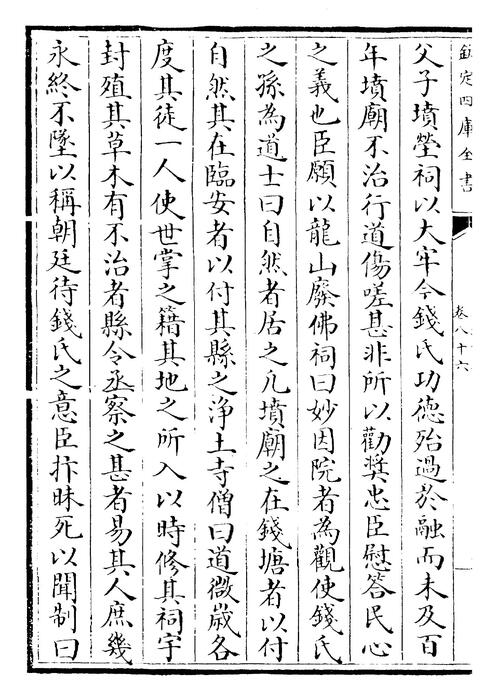 欽定四庫全書
卷八十六
父子墳塋祠以大牢今錢氏功德殆過於融而未及百
年墳廟不治行道傷嗟甚非所以勸奬忠臣慰答民心
之義也臣願以龍山廢佛祠曰妙因院者為觀使錢氏
之孫為道士曰自然者居之凡墳廟之在錢塘者以付
自然其在臨安者以付其縣之浄土寺僧曰道微歳各
度其徒一人使世掌之籍其地之所入以時修其祠宇
封殖其草木有不治者縣令丞察之甚者易其人庶幾
永終不墜以稱朝廷待錢氏之意臣抃昧死以聞制曰